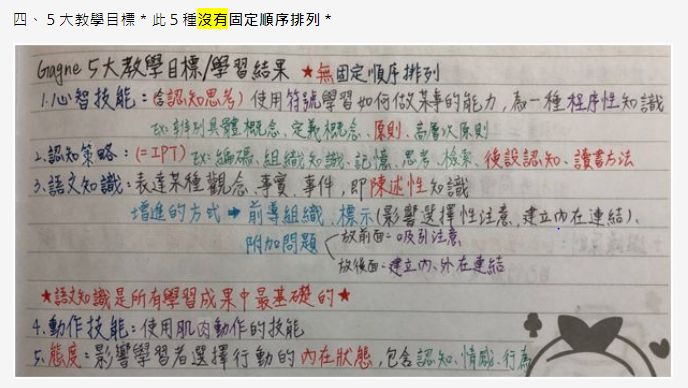 四、5大教學目標*此5種沒有固定順序排列*
Gagne 5大教學目標/學習結果 ★無固定順序排列
1.心智技能:(含認知思考)使用符號學習如何做某事的能力,為一種程序性知識
EX:辨別具體概念、定義概念、原則、高層次原則
2.認知策略:(=IPT) EX:編碼、組織知識、記憶、思考、檢索、後設認知、讀書方法
3.語文知識:表達某種觀念、事實、事件,即陳述性知識
增進的方式→前導組織、標示(影響選擇性注意、建立內在連結)、
附加問題 放前面:吸引注意
放後面:建立內、外在連結
★語文知識是所有學習成果中最基礎的★
4.動作技能:使用肌肉動作的技能
5.態度:影響學習者選擇行動的內在狀態,包含認知、情感、行為